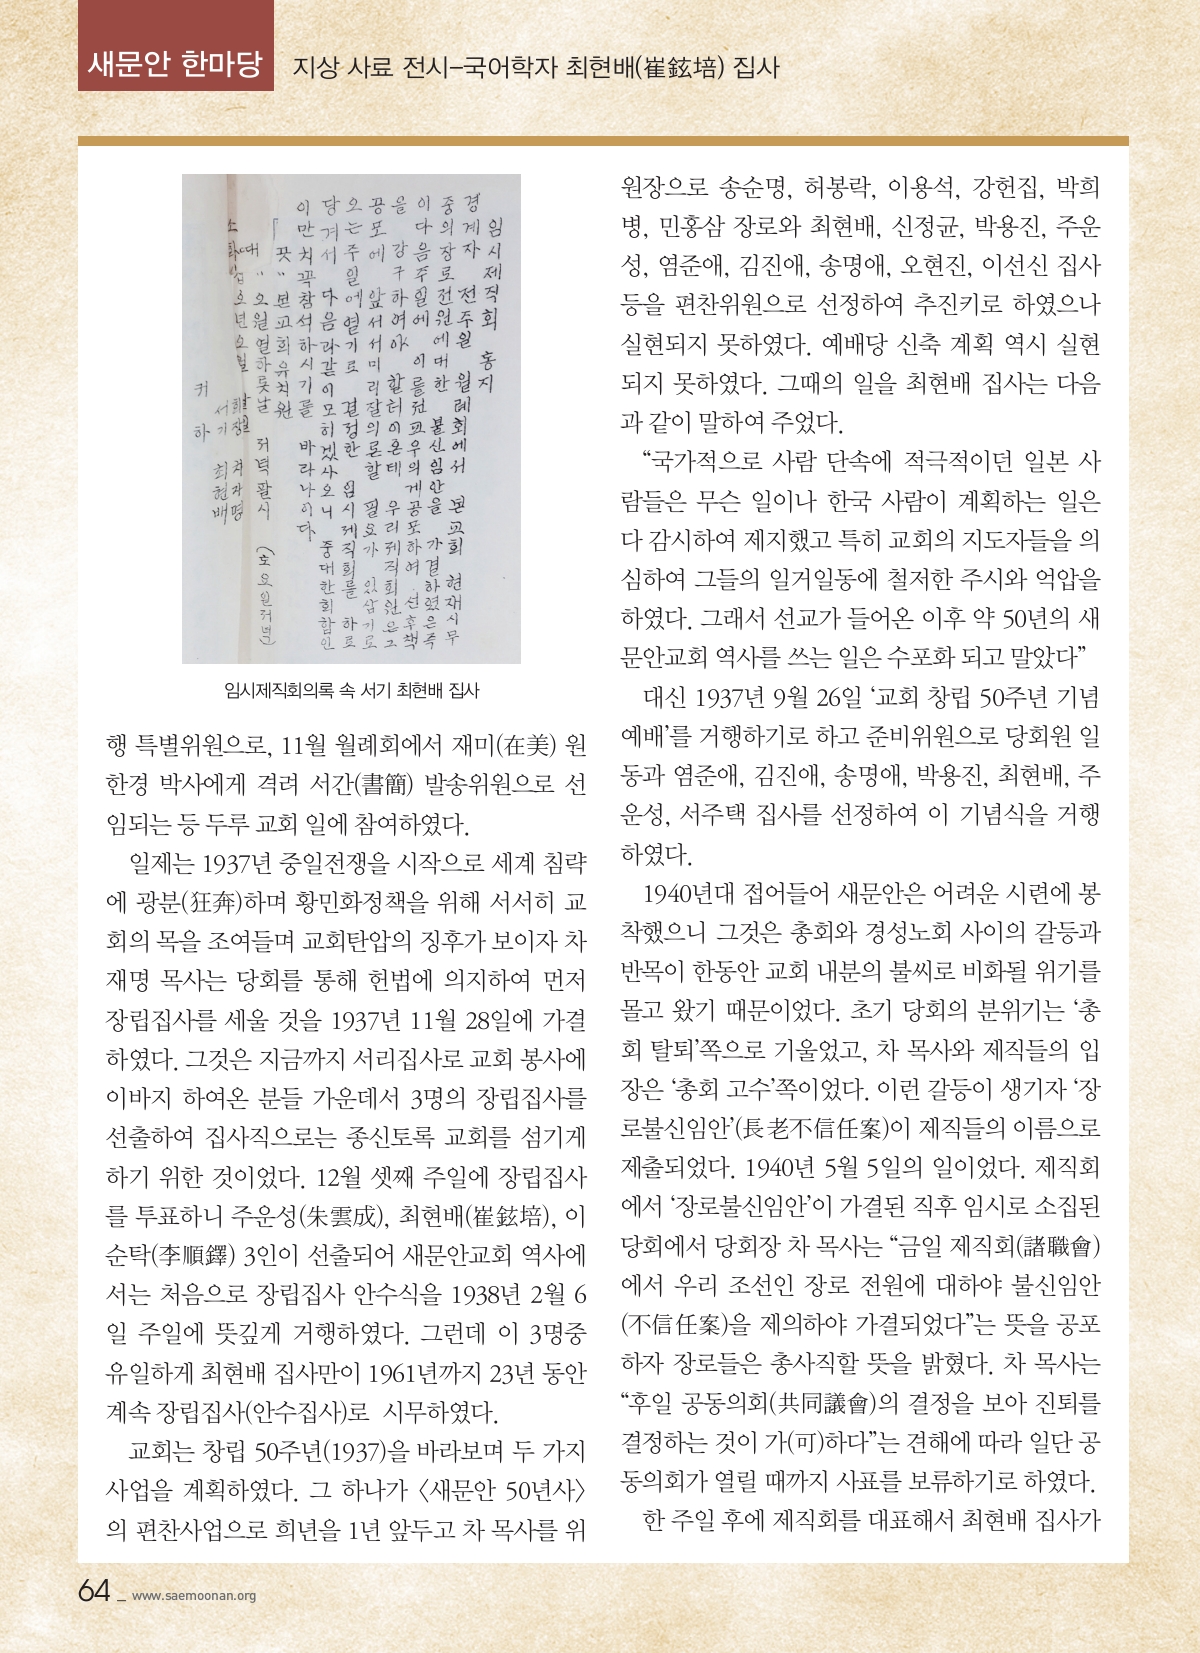 새문안 한마당
지상 사료 전시–국어학자 최현배(崔鉉培) 집사
임시제직회 홍지
경계자 전주일 월례회에서 본교회 현재시무
중의장로전원에대한 불신임안을 가결하였은즉
이다음주일에 이를전교우의게공포하여 선후책
을 강구하여야 할터이온데 우리제직회원은그
공포에 앞서서미리잘의론할 필요가 있삽기로
오는주일에열기로 결정한 임시제직회를 하로
당겨서 다음과같이모히겠사오니 중대한회합인
이만치꼭참석하시기를 바라나이다
곳 본교회유치원
대 오월열하룻날 저녁팔시 (토요일저녁)
서기 최현배
귀하
임시제직회의록 속 서기 최현배 집사
행 특별위원으로, 11월 월례회에서 재미(在美) 원
한경 박사에게 격려 서간(書簡) 발송위원으로 선
임되는 등 두루 교회 일에 참여하였다.
일제는 1937년 중일전쟁을 시작으로 세계 침략
에 광분(狂奔)하며 황민화정책을 위해 서서히 교
회의 목을 조여들며 교회탄압의 징후가 보이자 차
재명 목사는 당회를 통해 헌법에 의지하여 먼저
장립집사를 세울 것을 1937년 11월 28일에 가결
하였다. 그것은 지금까지 서리집사로 교회 봉사에
이바지 하여온 분들 가운데서 3명의 장립집사를
선출하여 집사직으로는 종신토록 교회를 섬기게
하기 위한 것이었다. 12월 셋째 주일에 장립집사
를 투표하니 주운성(朱雲成), 최현배(崔鉉培), 이
순탁(李順鐸) 3인이 선출되어 새문안교회 역사에
서는 처음으로 장립집사 안수식을 1938년 2월 6
일 주일에 뜻깊게 거행하였다. 그런데 이 3명중
유일하게 최현배 집사만이 1961년까지 23년 동안
계속 장립집사(안수집사)로 시무하였다.
교회는 창립 50주년(1937)을 바라보며 두 가지
사업을 계획하였다. 그 하나가 〈새문안 50년사〉
의 편찬사업으로 희년을 1년 앞두고 차 목사를 위
원장으로 송순명, 허봉락, 이용석, 강헌집, 박희
병, 민홍삼 장로와 최현배, 신정균, 박용진, 주운
성, 염준애, 김진애, 송명애, 오현진, 이선신 집사
등을 편찬위원으로 선정하여 추진키로 하였으나
실현되지 못하였다. 예배당 신축 계획 역시 실현
되지 못하였다. 그때의 일을 최현배 집사는 다음
과 같이 말하여 주었다.
“국가적으로 사람 단속에 적극적이던 일본 사
람들은 무슨 일이나 한국 사람이 계획하는 일은
다 감시하여 제지했고 특히 교회의 지도자들을 의
심하여 그들의 일거일동에 철저한 주시와 억압을
하였다. 그래서 선교가 들어온 이후 약 50년의 새
문안교회 역사를 쓰는 일은 수포화 되고 말았다”
대신 1937년 9월 26일 ‘교회 창립 50주년 기념
예배’를 거행하기로 하고 준비위원으로 당회원 일
동과 염준애, 김진애, 송명애, 박용진, 최현배, 주
운성, 서주택 집사를 선정하여 이 기념식을 거행
하였다.
1940년대 접어들어 새문안은 어려운 시련에 봉
착했으니 그것은 총회와 경성노회 사이의 갈등과
반목이 한동안 교회 내분의 불씨로 비화될 위기를
몰고 왔기 때문이었다. 초기 당회의 분위기는 ‘총
회 탈퇴’쪽으로 기울었고, 차 목사와 제직들의 입
장은 ‘총회 고수’쪽이었다. 이런 갈등이 생기자 ‘장
로불신임안’(長老不信任案)이 제직들의 이름으로
제출되었다. 1940년 5월 5일의 일이었다. 제직회
에서 ‘장로불신임안’이 가결된 직후 임시로 소집된
당회에서 당회장 차 목사는 “금일 제직회(諸職會)
에서 우리 조선인 장로 전원에 대하야 불신임안
(不信任案)을 제의하야 가결되었다”는 뜻을 공포
하자 장로들은 총사직할 뜻을 밝혔다. 차 목사는
“후일 공동의회(共同議會)의 결정을 보아 진퇴를
결정하는 것이 가(可)하다”는 견해에 따라 일단 공
동의회가 열릴 때까지 사표를 보류하기로 하였다.
한 주일 후에 제직회를 대표해서 최현배 집사가
64 _ www.saemoonan.org